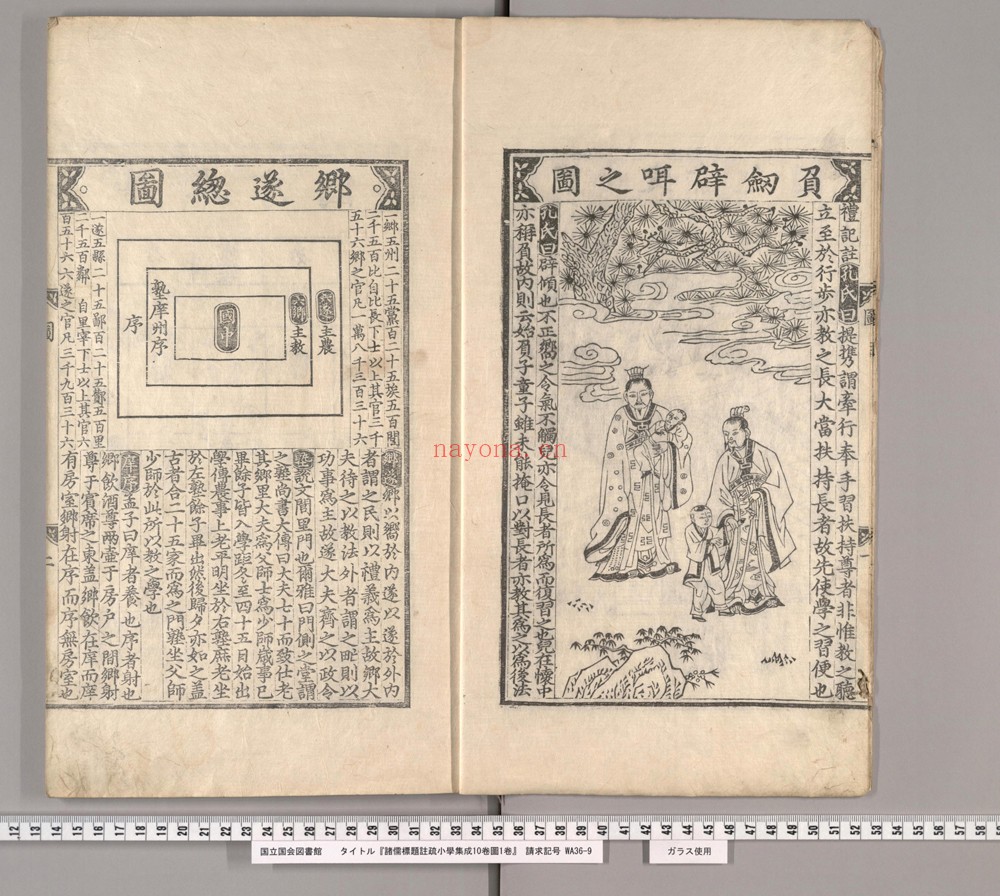 負劒辟咡之圖
禮記註孔氏曰提攜謂牽行奉手習扶持尊者非惟教之聽
立至於行步亦教之長大當扶持長者故先使學之習便也
孔氏曰辟傾也不正嚮之令氣不觸兒亦令見長者所為而復習之也兒在懷中
亦稱負故内則云始負子童子雖未能掩口以對長者亦教其為之以為後法
鄉遂緫圖
一鄉五州二十五黨百二十五族五百閭
二千五百比自比長下士以上其官三千
五十六鄉之官凡一萬八千三百三十六
六遂主農
六鄉主教
國中
塾庠州序
序
一遂五縣二十五鄙百二十五酇五百里
二千五百鄰自里宰下士以上其官六
百五十六六遂之官凡三千九百三十六
鄉遂鄉以嚮於内遂以遂於外内
者謂之民則以禮義為主故鄉大
夫待之以教法外者謂之甿則以
功事為主故遂大夫齊之以政令
塾說文閭里門也爾雅曰門側之堂謂
之塾尚書大傳曰大夫七十而致仕老
其鄉里大夫為父師士為少師歲事已
畢餘子皆入學距冬至四十五日始出
學傳農事上老平明坐於右塾庶老坐
於左塾餘子畢出然後歸夕亦如之蓋
古者合二十五家而為之門塾坐父師
少師於此所以教之學也
庠序孟子曰庠者養也序者射也
鄉飲酒尊兩壺于房戶之間鄉射
尊于賓席之東盖鄉飲在庠而庠
有房室鄉射在序而序無房室也
圖
二
圖
一
nayona.cn
12 13 14 15 16 17 18 19 20 21 22 23 24 25 26 27 28 29 30 31 32 33 34 35 36 37 38 39 40 41 42 43 44 45 46 47 48 49 50 51 52 53 54 55 56 57 58
国立国会図書館 タイトル『諸儒標題註疏小學集成10巻圖1巻』 請求記号 WA36-9
ガラス使用